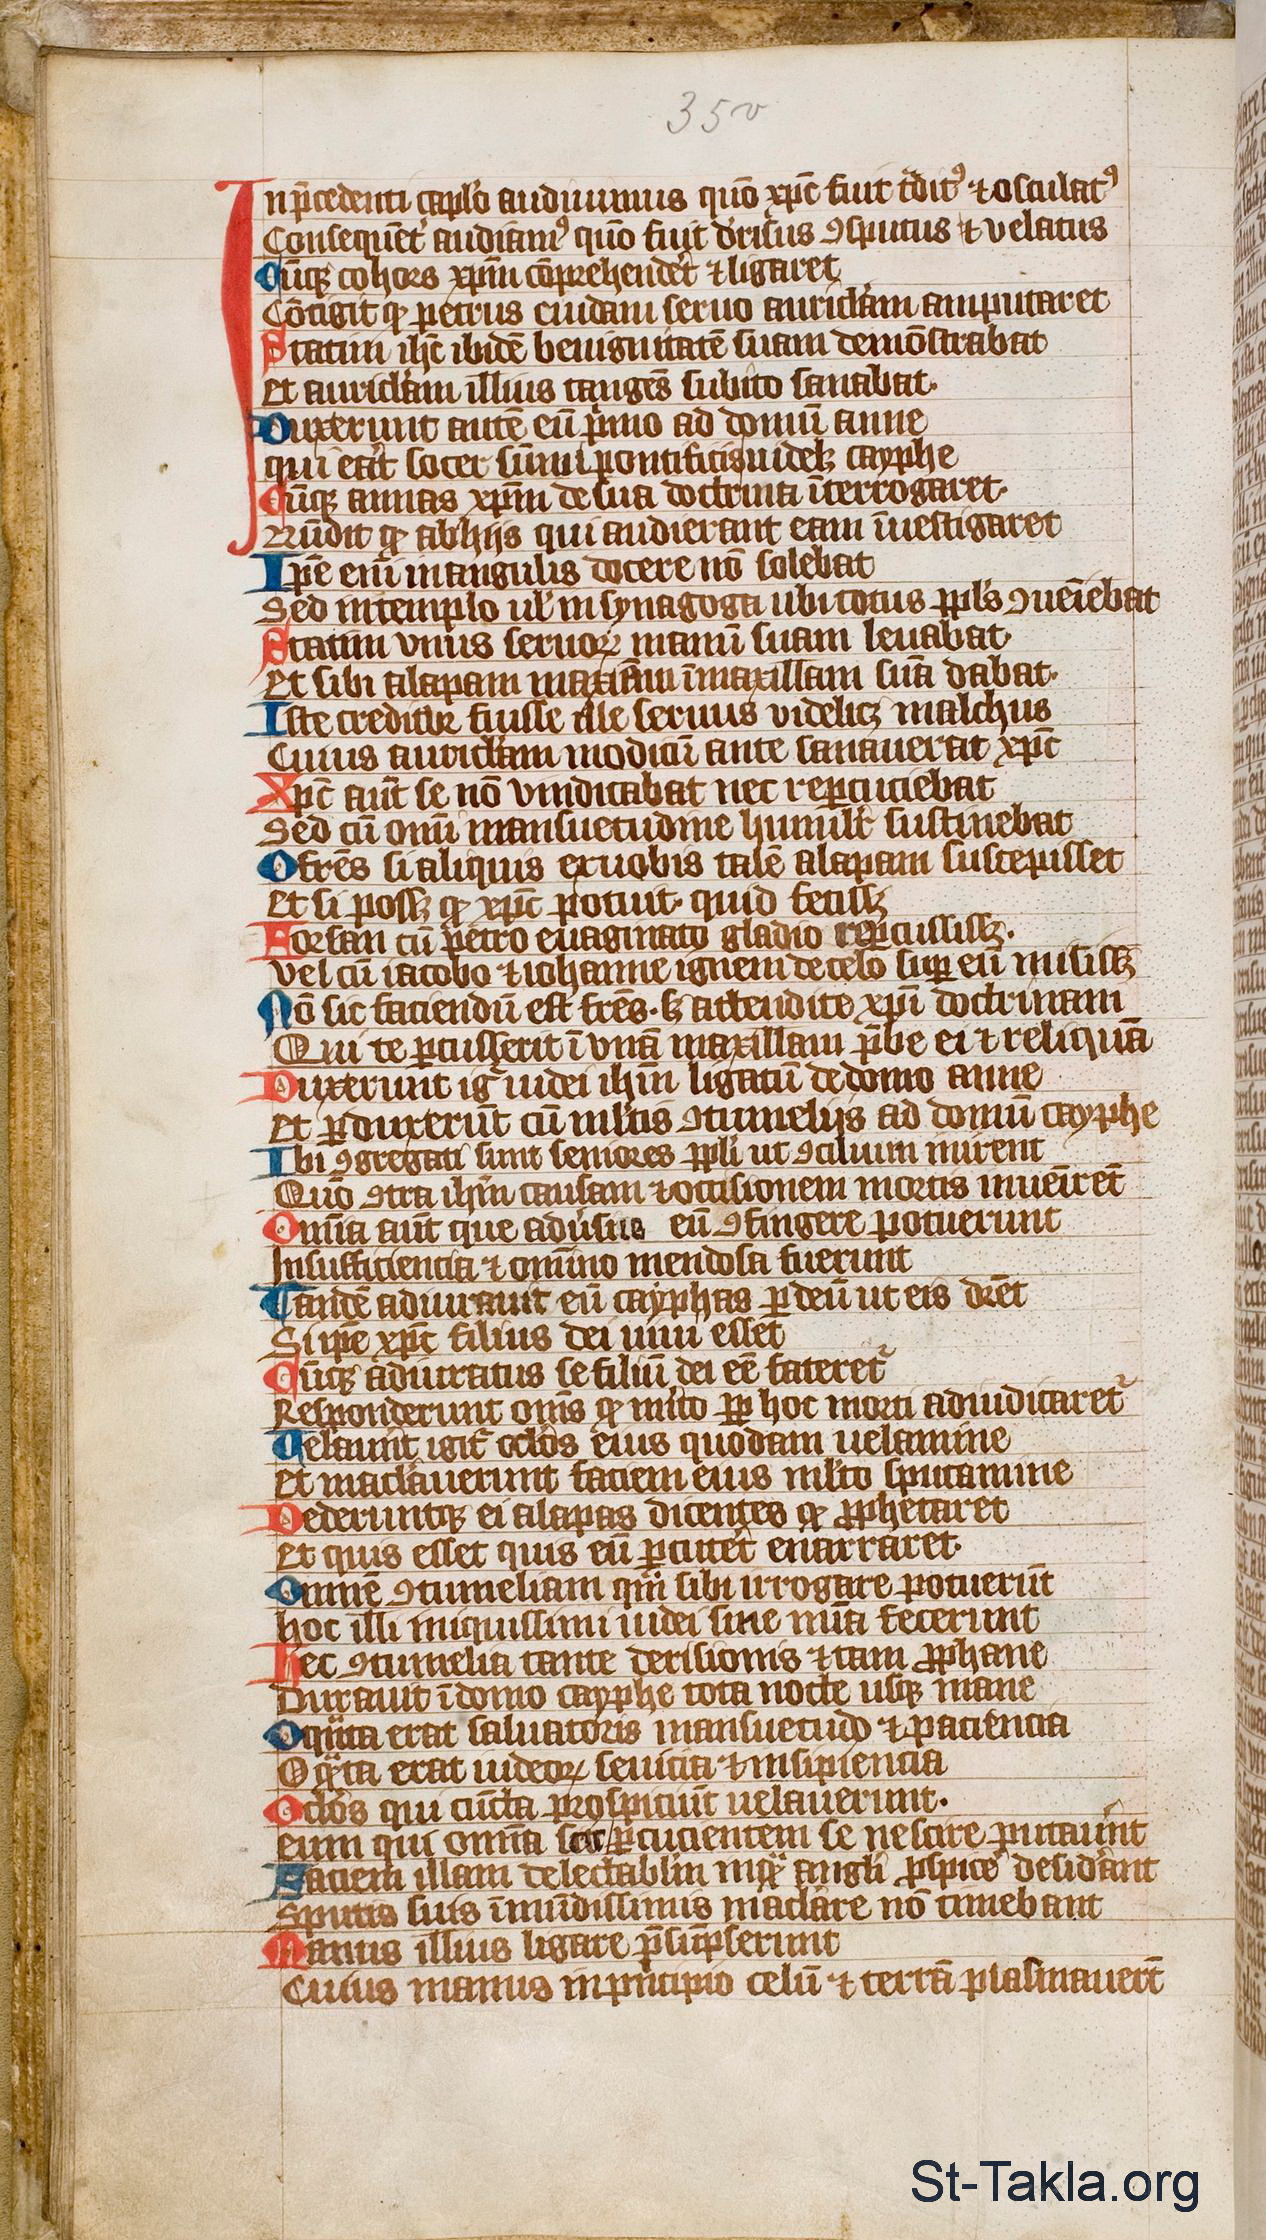 35v
In p̄cedenti capl̕o audiuimus quō xp̄c fuit t̄dit⁹ ⁊ osculat⁹
Consequēt̕ audiam⁹ quō fuit d̕risus ꝯsputus ⁊ velatus
Cūqꝫ cohors xp̄m cōprehendēt ⁊ ligaret
Cōtigit ꝙ petrus cuidam seruo auricl̕am amputaret
Statim ih̄c ibidē benignitatē suam demōstrabat
Et auricl̕am illius tangēs subito sanabat.
Duxerunt autē eū p̄mo ad domū anne
qui erāt socer sūmi pontificis uidelꝫ cayphe
Cūqꝫ annas xp̄m de sua doctrina īterrogaret.
Rn̄dit ꝙ ab hijs qui audierant eam īuestigaret
Ip̄e em̄ in angulis docere nō solebat
Sed in templo ul̕ in synagoga ubi totus ppl̕s ꝯueīebat
Statim vnus seruoꝝ manū suam leuabat.
Et sibi alapam maxīam ī maxillam suā dabat.
Iste creditur fuisse ille seruus videlicꝫ malchus
Cuius auricl̕am modicū ante sanauerat xp̄c
Xp̄c aūt se nō vindicabat nec reꝑcuciebat
Sed cū omī mansuetudine humilit̕ sustinebat
O frēs si aliquis ex uobis talē alapam suscepisset
Et si possꝫ ꝙ xp̄c potuit. quid fecissꝫ
Forsan cū petro euaginato gladio reꝑcussissꝫ.
vel cū iacobo ⁊ iohanne ignem de celo suꝑ eū misissꝫ
Nō sic faciendū est frēs. sꝫ attendite xp̄i doctrinam
Qui te ꝑcusserit ī vnā maxillam p̄be ei ⁊ reliquā
Duxerunt ig̕ iudei ih̄m ligatū de domo anne
Et ꝑduxerūt cū ml̕tis ꝯtumelijs ad domū cayphe
Ibi ꝯgregati sunt seniores ppl̕i ut ꝯcilium inirent
Quō ꝯtra ih̄m causam ⁊ occisionem mortis inueīrēt
Omīa aūt que aduˢus eū ꝯfingere potuerunt
Insufficiencia ⁊ omīno mendosa fuerunt
Tandē adiurauit eū cayphas ꝑ deū ut eis dicēt
Si ip̄e xp̄c filius dei uiui esset
Cūqꝫ adiuratus se filiū dei eē fateret᷑
Responderunt om̄s ꝙ mito ꝓp hoc morti adiudicaret᷑
Uelauūt igit᷑ ocl̕os eius quodam uelamine
Et macl̕auerunt faciem eius ml̕to sputamine
Dederuntqꝫ ei alapas dicentes ꝙ ꝓphetaret
Et quis esset quis eū ꝑcutēt enarraret.
Omnē ꝯtumeliam quā sibi irrogare potuerūt
hoc illi iniquissimi iudei sine mīa fecerunt
Hec ꝯtumelia tante derisionis ⁊ tam ꝓphane
Durauit ī domo cayphe tota nocte usqꝫ mane
O quāta erat saluatoris mansuetudo ⁊ paciencia
O qᵃ̄ta erat iudeoꝝ seuicia ⁊ insipiencia
Ocl̕os qui cūcta prospiciūt uelauerunt.
eum qui omīa scit ꝑcucientem se nescire putauīnt
Faciem illam delectabl̕m in qᵃ̄ angl̕i ꝓspicē desid̕ant
Sputis suis īmūdissimis macl̕are nō timebant
Manus illius ligare p̄sūpserunt
Cuius manus in pricipio celū ⁊ terrā plasmauerūt
St-Takla.org